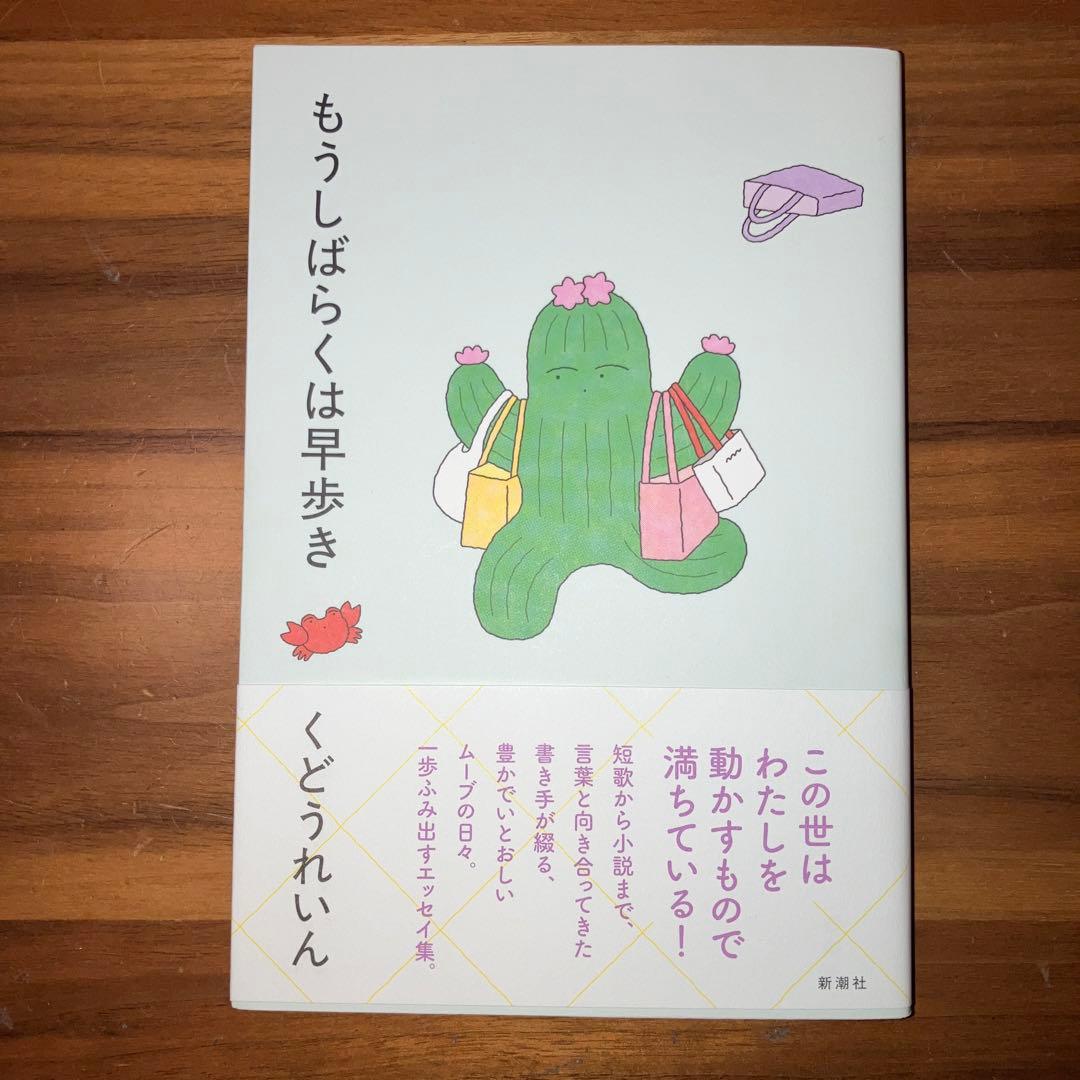 もうしばらくは早歩き
くどうれいん
この世は
わたしを
動かすもので
満ちている!
短歌から小説まで、
言葉と向き合ってきた
書き手が綴る、
豊かでいとおしい
ムーブの日々。
一歩ふみ出すエッセイ集。
新潮社